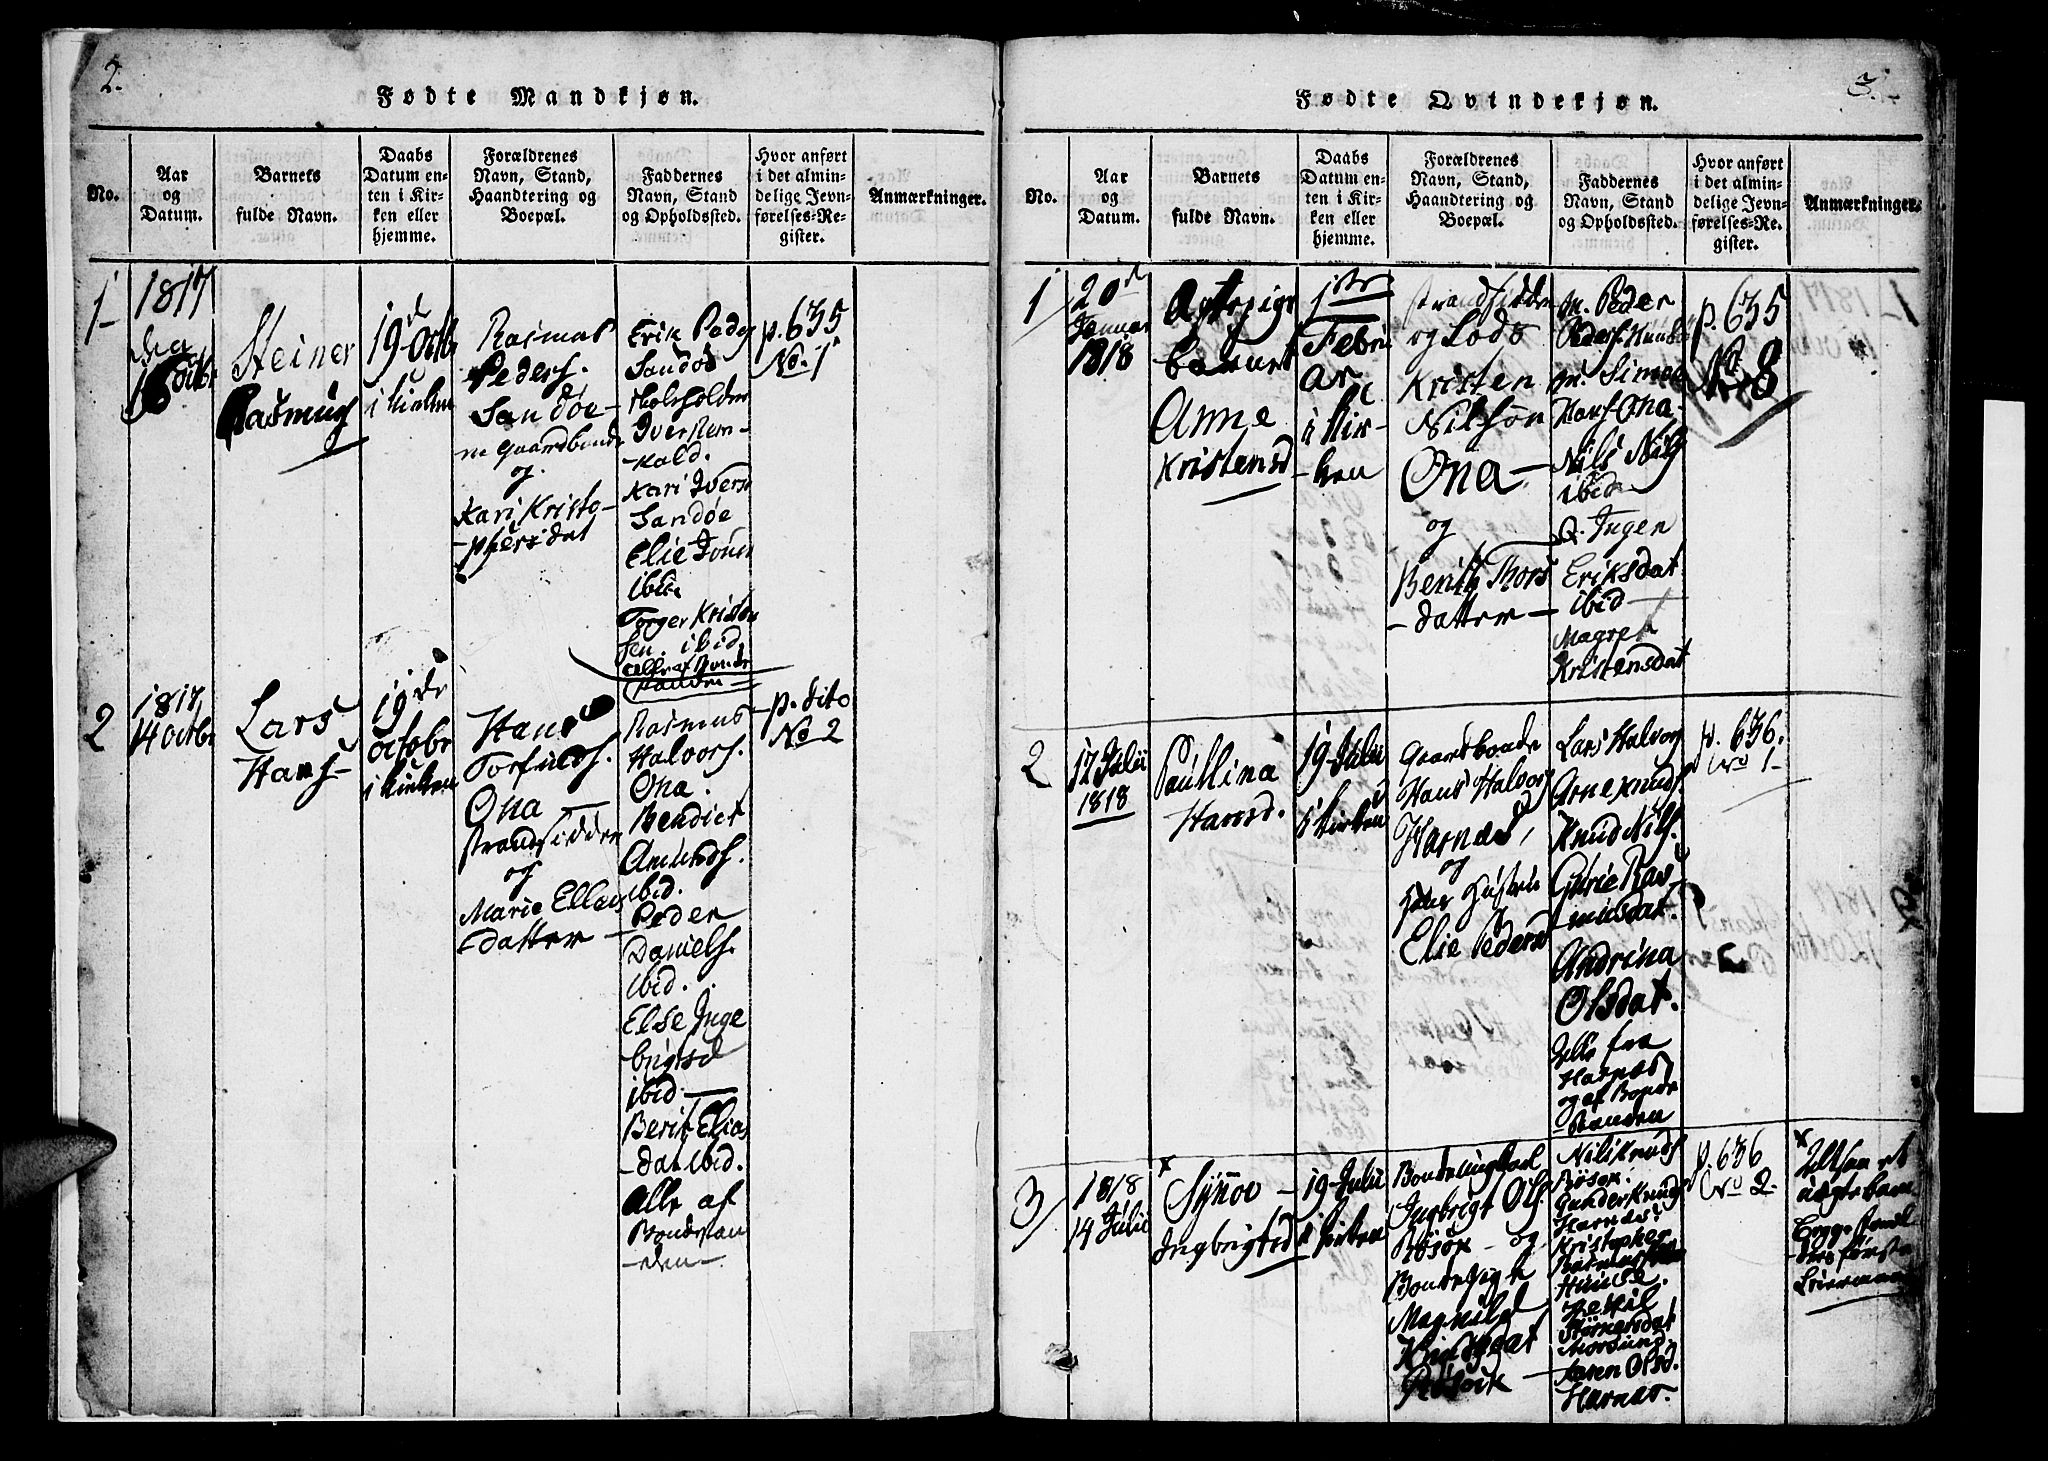 2.
Fødte Mandkjøn.
No.
Aar
og
Datum.
Barnets
fulde Navn.
Daabs
Datum en-
ten i Kir-
ken eller
hjemme.
Forældrenes
Navn, Stand,
Haandtering og
Boepæl.
Faddernes
Navn, Stand
og Opholdssted.
Hvor anført
i det almin-
delige Jevn-
førelses-Re-
gister.
Anmærkninger.
1
1817
Steiner
Rasmus
19 Octb
i Kirken
Rasmus
Peders.
Sandøe
gaardbonde
og
Kari Kristo-
-phersdat
Erik Peders
Sandøe
Skoleholder
Iver Rem-
-kald.
Kari Ivers
Sandøe
Elie
ibid.
Torger Kristen
Sen. ibid
alle af Bonde
standen
p. 635
No. 1
2
1817
14 Octbr
Lars
Hans
19 de
octobr
i Kirken
Hans
Torfinds.
Ona
strandsidder
og
Marie Ellias
-datter
Rasmus
Halvors.
Ona.
Bendict
Amunds.
ibid.
Peder
Daniels.
ibid.
Else Inge
brigtsd
ibid
Berit Elias
-dat ibid.
Alle af
Bondestan
-den
p. dito
No 2
3.
Fødte Qvindekjøn.
No.
Aar
og
Datum.
Barnets
fulde Navn.
Daabs
Datum en-
ten i Kir-
ken eller
hjemme.
Forældrenes
Navn, Stand,
Haandtering og
Boepæl.
Faddernes
Navn, Stand
og Opholdssted.
Hvor anført
i det almin-
delige Jevn-
førelses-Re-
gister.
Anmærkninger.
1
20d
Januar
1818
Anne
Kristensd
1ste
Febru
ar
i Kir-
-ken
strandsidder
og Lods
Kristen
Nilson
Ona
og
Berith Thors
-datter
m. Peder
Peders.
m. Simon
Hans. Ona
Nils Nils
ibid
Q. Inger
Eriksdat
ibid
Magret
Kristensdat
p. 635
No 8
2
17 Julii
1818
Paullina
Hansd.
19 Julii
i Kirken
Gaardbonde
Hans Halvors
Harnæs,
og
hans Hustru
Elie Pedersd
Lars Halvors
Arne Knuds.
Knud Nils.
Gurie Ras-
-musdat.
Andrina
Olsdat.
Alle fra
Harnæs
og af Bonde
-standen
p. 636.
No 1
3
1818
14 Julii
x
Synov
Ingbrigtsd
19 Julii
i Kirken
Bondeungkarl
Ingbrigt Ols.
Røsok og
Bondepige
Magnild
Røsok
Nils Knuds
Røsok.
Gunder Knuds
Harnæs.
Kristopher
Rasmus
Huuse.
Stornersdat
Morsund
Karen Olsd.
Harnæs.
p. 636
No 2.
x
Begge
første
Leiermaal